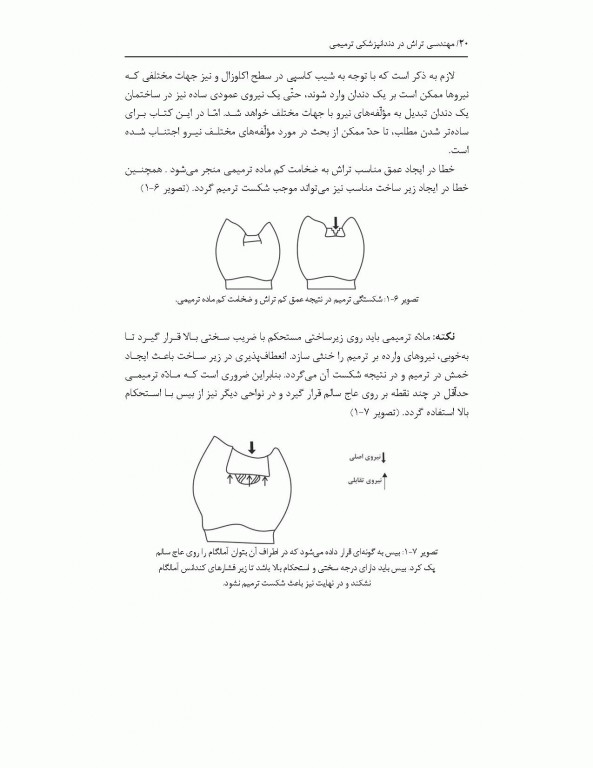 ۲۰/ مهندسی تراش در دندانپزشکی ترمیمی
لازم به ذکر است که با توجه به شیب کاسپی در سطح اکلوزال و نیز جهات مختلفی کـه
نیروها ممکن است بر یک دندان وارد شوند، حتّی یک نیروی عمودی ساده نیز در ساختمان
یک دندان تبدیل به مؤلّفه‌های نیرو با جهات مختلف خواهد شـد. امّـا در ایـن کتـاب بـرای
ساده‌تر شدن مطلب، تا حدّ ممکن از بحث در مورد مؤلّفه‌های مختلـف نیـرو اجتنـاب شـده
است.
خطا در ایجاد عمق مناسب تراش به ضخامت کم ماده ترمیمی منجر می‌شود . همچنـین
خطا در ایجاد زیر ساخت مناسب نیز می‌تواند موجب شکست ترمیم گردد. (تصویر ۶-۱)
تصویر ۶-۱: شکستگی ترمیم در نتیجه عمق کم تراش و ضخامت کم ماده ترمیمی.
نکته: مادّه ترمیمی باید روی زیرساختی مستحکم با ضریب سـختی بـالا قـرار گیـرد تـا
به‌خوبی، نیروهای وارده بر ترمیم را خنثی سازد. انعطاف‌پذیری در زیر سـاخت باعـث ایجـاد
خمش در ترمیم و در نتیجه شکست آن می‌گردد. بنابراین ضروری است کـه مـادّه ترمیمـی
حداقل در چند نقطه بر روی عاج سالم قرار گیرد و در نواحی دیگر نیز از بیس بـا اسـتحکام
بالا استفاده گردد. (تصویر ۷-۱)
نیروی اصلی
نیروی تقابلی
تصویر ۷-۱: بیس به گونه‌ای قرار داده می‌شود که در اطراف آن بتوان آمالگام را روی عاج سالم
پک کرد. بیس باید دارای درجه سختی و استحکام بالا باشد تا زیر فشارهای کندانس آمالگام
نشکند و در نهایت نیز باعث شکست ترمیم نشود.